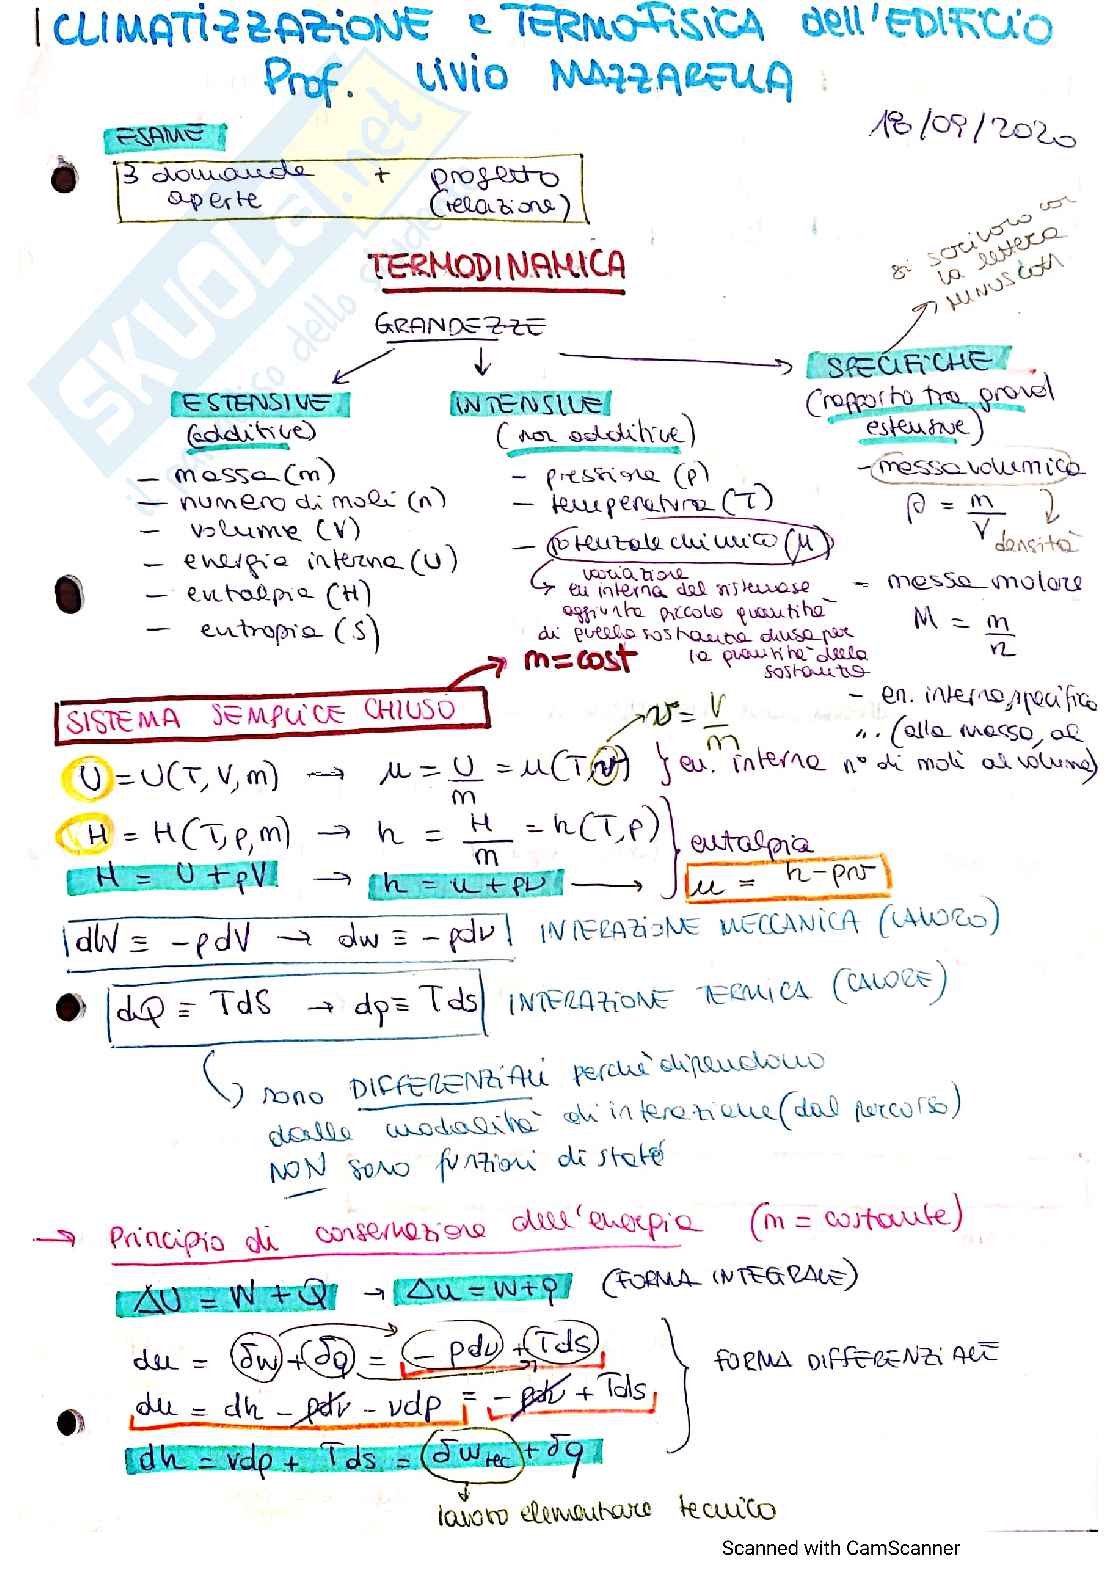 CLIMATIZZAZIONE e TERMOFISICA dell'EDIFICIO
Prof. LIVIO MAZZARELLA
18/09/2020
ESAME
3 domande aperte + progetto (relazione)
TERMODINAMICA
GRANDEZZE
si scrivono con
la lettera
MINUSCOLA
ESTENSIVE
(additive)
- massa (m)
- numero di moli (n)
- volume (V)
- energia interna (U)
- entalpia (H)
- entropia (S)
INTENSIVE
(non additive)
- pressione (p)
- temperatura (T)
- potenziale chimico (μ)
↳ variazione
en interna del sistema se
aggiunta piccola quantità
di quella sostanza divisa per
la quantità della
sostanza
SPECIFICHE
(rapporto tra grand
estensive)
- massa volumica
ρ = m/V
densità
- massa molare
M = m/n
- en. interna specifica
(alla massa, al
n° di moli al volume)
SISTEMA SEMPLICE CHIUSO → m = cost
v = V/m
U = U(T, V, m) → u = U/m = u(T, v) } en. interna
H = H(T, p, m) → h = H/m = h(T, p) } entalpia
H = U + pV → h = u + pv → u = h - pv
dW ≡ -pdV → dw ≡ -pdv INTERAZIONE MECCANICA (LAVORO)
dQ ≡ TdS → dq ≡ Tds INTERAZIONE TERMICA (CALORE)
↳ sono DIFFERENZIALI perchè dipendono
dalle modalità di interazione (dal percorso)
NON sono funzioni di stato
→ Principio di conservazione dell'energia (m = costante)
ΔU = W + Q → Δu = w + q (FORMA INTEGRALE)
du = δw + δq = -pdv + Tds
du = dh - pdv - vdp = -pdv + Tds
FORMA DIFFERENZIALE
dh = vdp + Tds = δw tec + δq
lavoro elementare tecnico
Scanned with CamScanner
SKUOLA.net
il paradiso dello studente